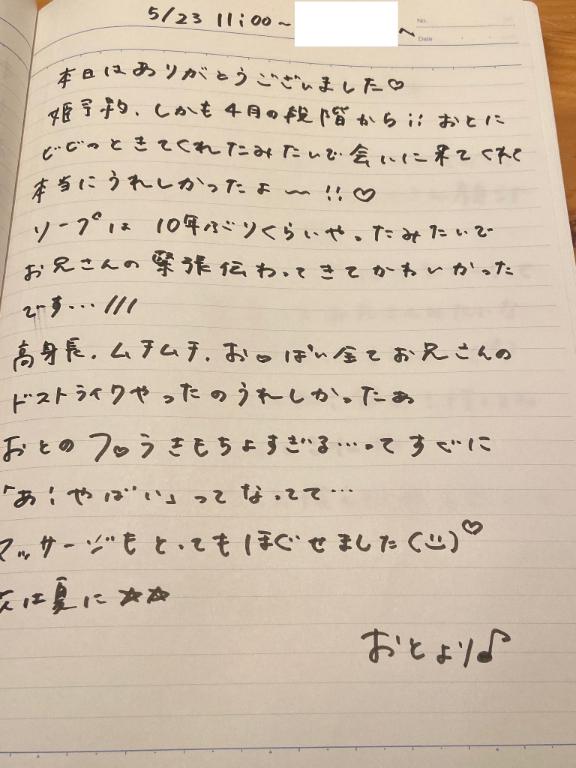 5/23 11:00~ ~
No.
Date
本日はありがとうございました♡
姫予約、しかも4月の段階から!! おとに
どどっときてくれたみたいで会いに来てくれて
本当にうれしかったよ〜!!♡
ソープは 10年ぶりくらいやったみたいで
お兄さんの緊張伝わってきてかわいかった
です…///
高身長、ムチムチ、お♡ぱい全てお兄さんの
ドストライクやったのうれしかったぁ
おとのフ♡うきもちよすぎる…ってすぐに
「あ!やばい」ってなってて…
マッサージもとってもほぐせました(:))♡
次は夏に☆☆
おとより♪